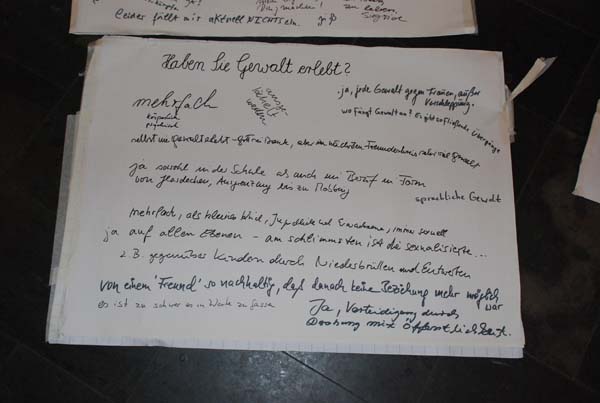 leider fällt mir aktuell NICHTS ein.
leben,
Haben Sie Gewalt erlebt?
ja, jede Gewalt gegen Frauen, außer
Verschleppung.
mehrfach
körperlich
psychisch
wo fängt Gewalt an? Es gibt so fließende Übergänge
selbst nie Gewalt erlebt - Gott sei Dank, aber im nächsten Freundeskreis
ja sowohl in der Schule als auch im Beruf in Form
von Ausgrenzung bis zu Mobbing
sprachliche Gewalt
mehrfach, als kleines Kind, Jugendliche und Erwachsene, immer sexuell
ja auf allen Ebenen - am schlimmsten ist die sexualisierte...
z.B. gegenüber Kindern durch Niederbrüllen und Entwerten
von einem 'Freund' so nachhaltig, daß danach keine Beziehung mehr möglich
war
es ist zu schwer es in Worte zu fassen
Ja, Verteidigung durch
Drohung mit Öffentlichkeit.